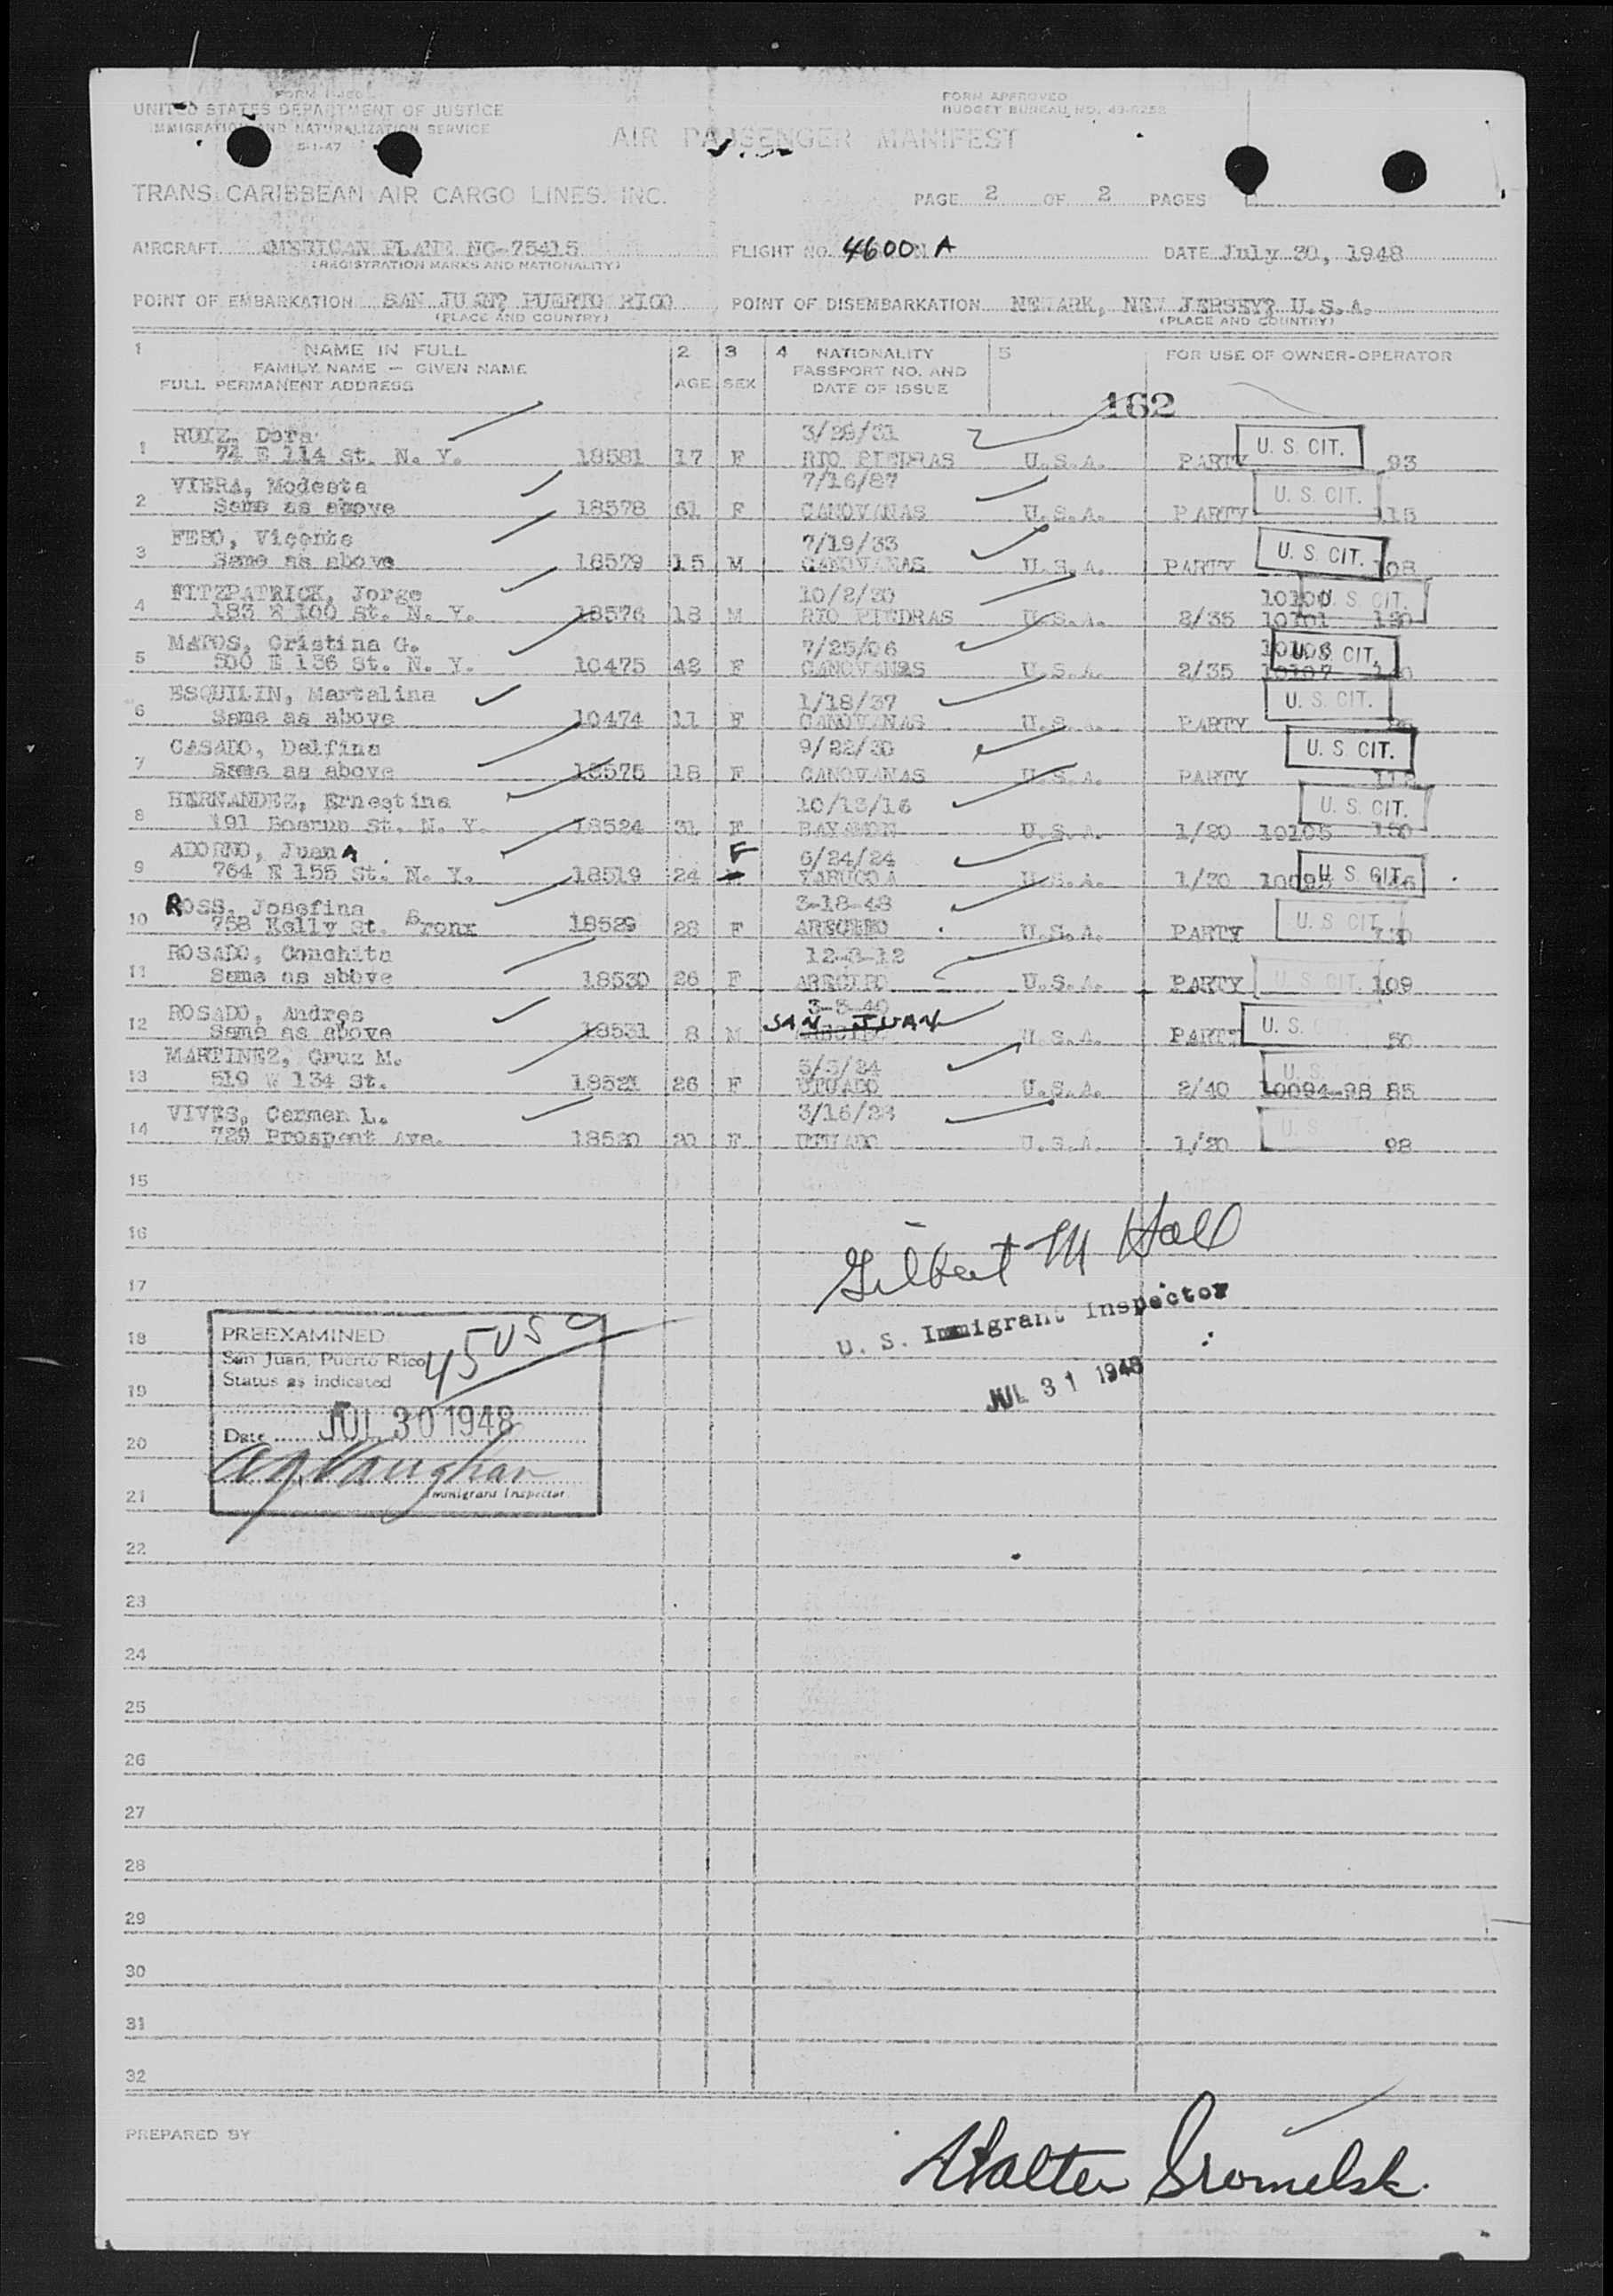 FORM I-466
UNITED STATES DEPARTMENT OF JUSTICE
IMMIGRATION AND NATURALIZATION SERVICE
5-1-47
FORM APPROVED
BUDGET BUREAU NO. 43-R253
AIR PASSENGER MANIFEST
TRANS CARIBBEAN AIR CARGO LINES. INC.
PAGE 2 OF 2 PAGES
AIRCRAFT AMERICAN PLANE NC-75415
(REGISTRATION MARKS AND NATIONALITY)
FLIGHT NO. 4600 A
DATE July 30, 1948
POINT OF EMBARKATION SAN JUAN? PUERTO RICO
(PLACE AND COUNTRY)
POINT OF DISEMBARKATION NEWARK, NEW JERSEY? U.S.A.
(PLACE AND COUNTRY)
1 NAME IN FULL 2 3 4 NATIONALITY 5 FOR USE OF OWNER-OPERATOR
FAMILY NAME — GIVEN NAME PASSPORT NO. AND
FULL PERMANENT ADDRESS AGE SEX DATE OF ISSUE
162
RUIZ, Dora 3/28/31
1 74 E 114 St. N. Y. 18581 17 F RIO PIEDRAS U.S.A. PARTY U. S. CIT. 93
VIERA, Modesta 7/16/87
2 Same as above 18578 61 F CANOVANAS U.S.A. PARTY U. S. CIT. 115
FEBO, Vicente 7/19/33
3 Same as above 18579 15 M CANOVANAS U.S.A. PARTY U. S. CIT. 108
FITZPATRICK, Jorge 10/2/30 10100
4 183 E 100 St. N. Y. 18576 18 M RIO PIEDRAS U.S.A. 2/35 10101 U. S. CIT.
MATOS, Cristina G. 7/25/06 10106
5 500 E 136 St. N. Y. 10475 42 F CANOVANAS U.S.A. 2/35 10107 U. S. CIT.
ESQUILIN, Martalina 1/18/37
6 Same as above 10474 11 F CANOVANAS U.S.A. PARTY U. S. CIT.
CASADO, Delfina 9/22/30
7 Same as above 18575 18 F CANOVANAS U.S.A. PARTY U. S. CIT.
HERNANDEZ, Ernestina 10/13/16
8 191 Boerum St. N. Y. 18524 31 F BAYAMON U.S.A. 1/20 10105 U. S. CIT. 150
ADORNO, JuanA F 6/24/24
9 764 E 155 St. N. Y. 18519 24 YABUCOA U.S.A. 1/20 10095 U. S. CIT.
ROSS, Josefina 3-18-48
10 758 Kelly St. Bronx 18529 28 F ARECIBO U.S.A. PARTY U. S. CIT.
ROSADO, Conchita 12-8-12
11 Same as above 18530 26 F ARECIBO U.S.A. PARTY U. S. CIT. 109
ROSADO, Andres 3-5-40
12 Same as above 18531 8 M SAN JUAN U.S.A. PARTY U. S. 50
MARTINEZ, Cruz M. 5/5/24
13 519 W 134 St. 18521 26 F UTUADO U.S.A. 2/40 10094-98 U. S. 85
VIVES, Carmen L. 3/16/28
14 729 Prospect Ave. 18520 20 F UTUADO U.S.A. 1/20 U. S. 98
15
16
Gilbert M Hall
17
U. S. Immigrant Inspector
JUL 31 1948
18 PREEXAMINED
San Juan, Puerto Rico
Status as indicated
45 USC
19
Date JUL 30 1948
20
A G Vaughan
21 Immigrant Inspector
22
23
24
25
26
27
28
29
30
31
32
PREPARED BY
Walter Gromelsk.